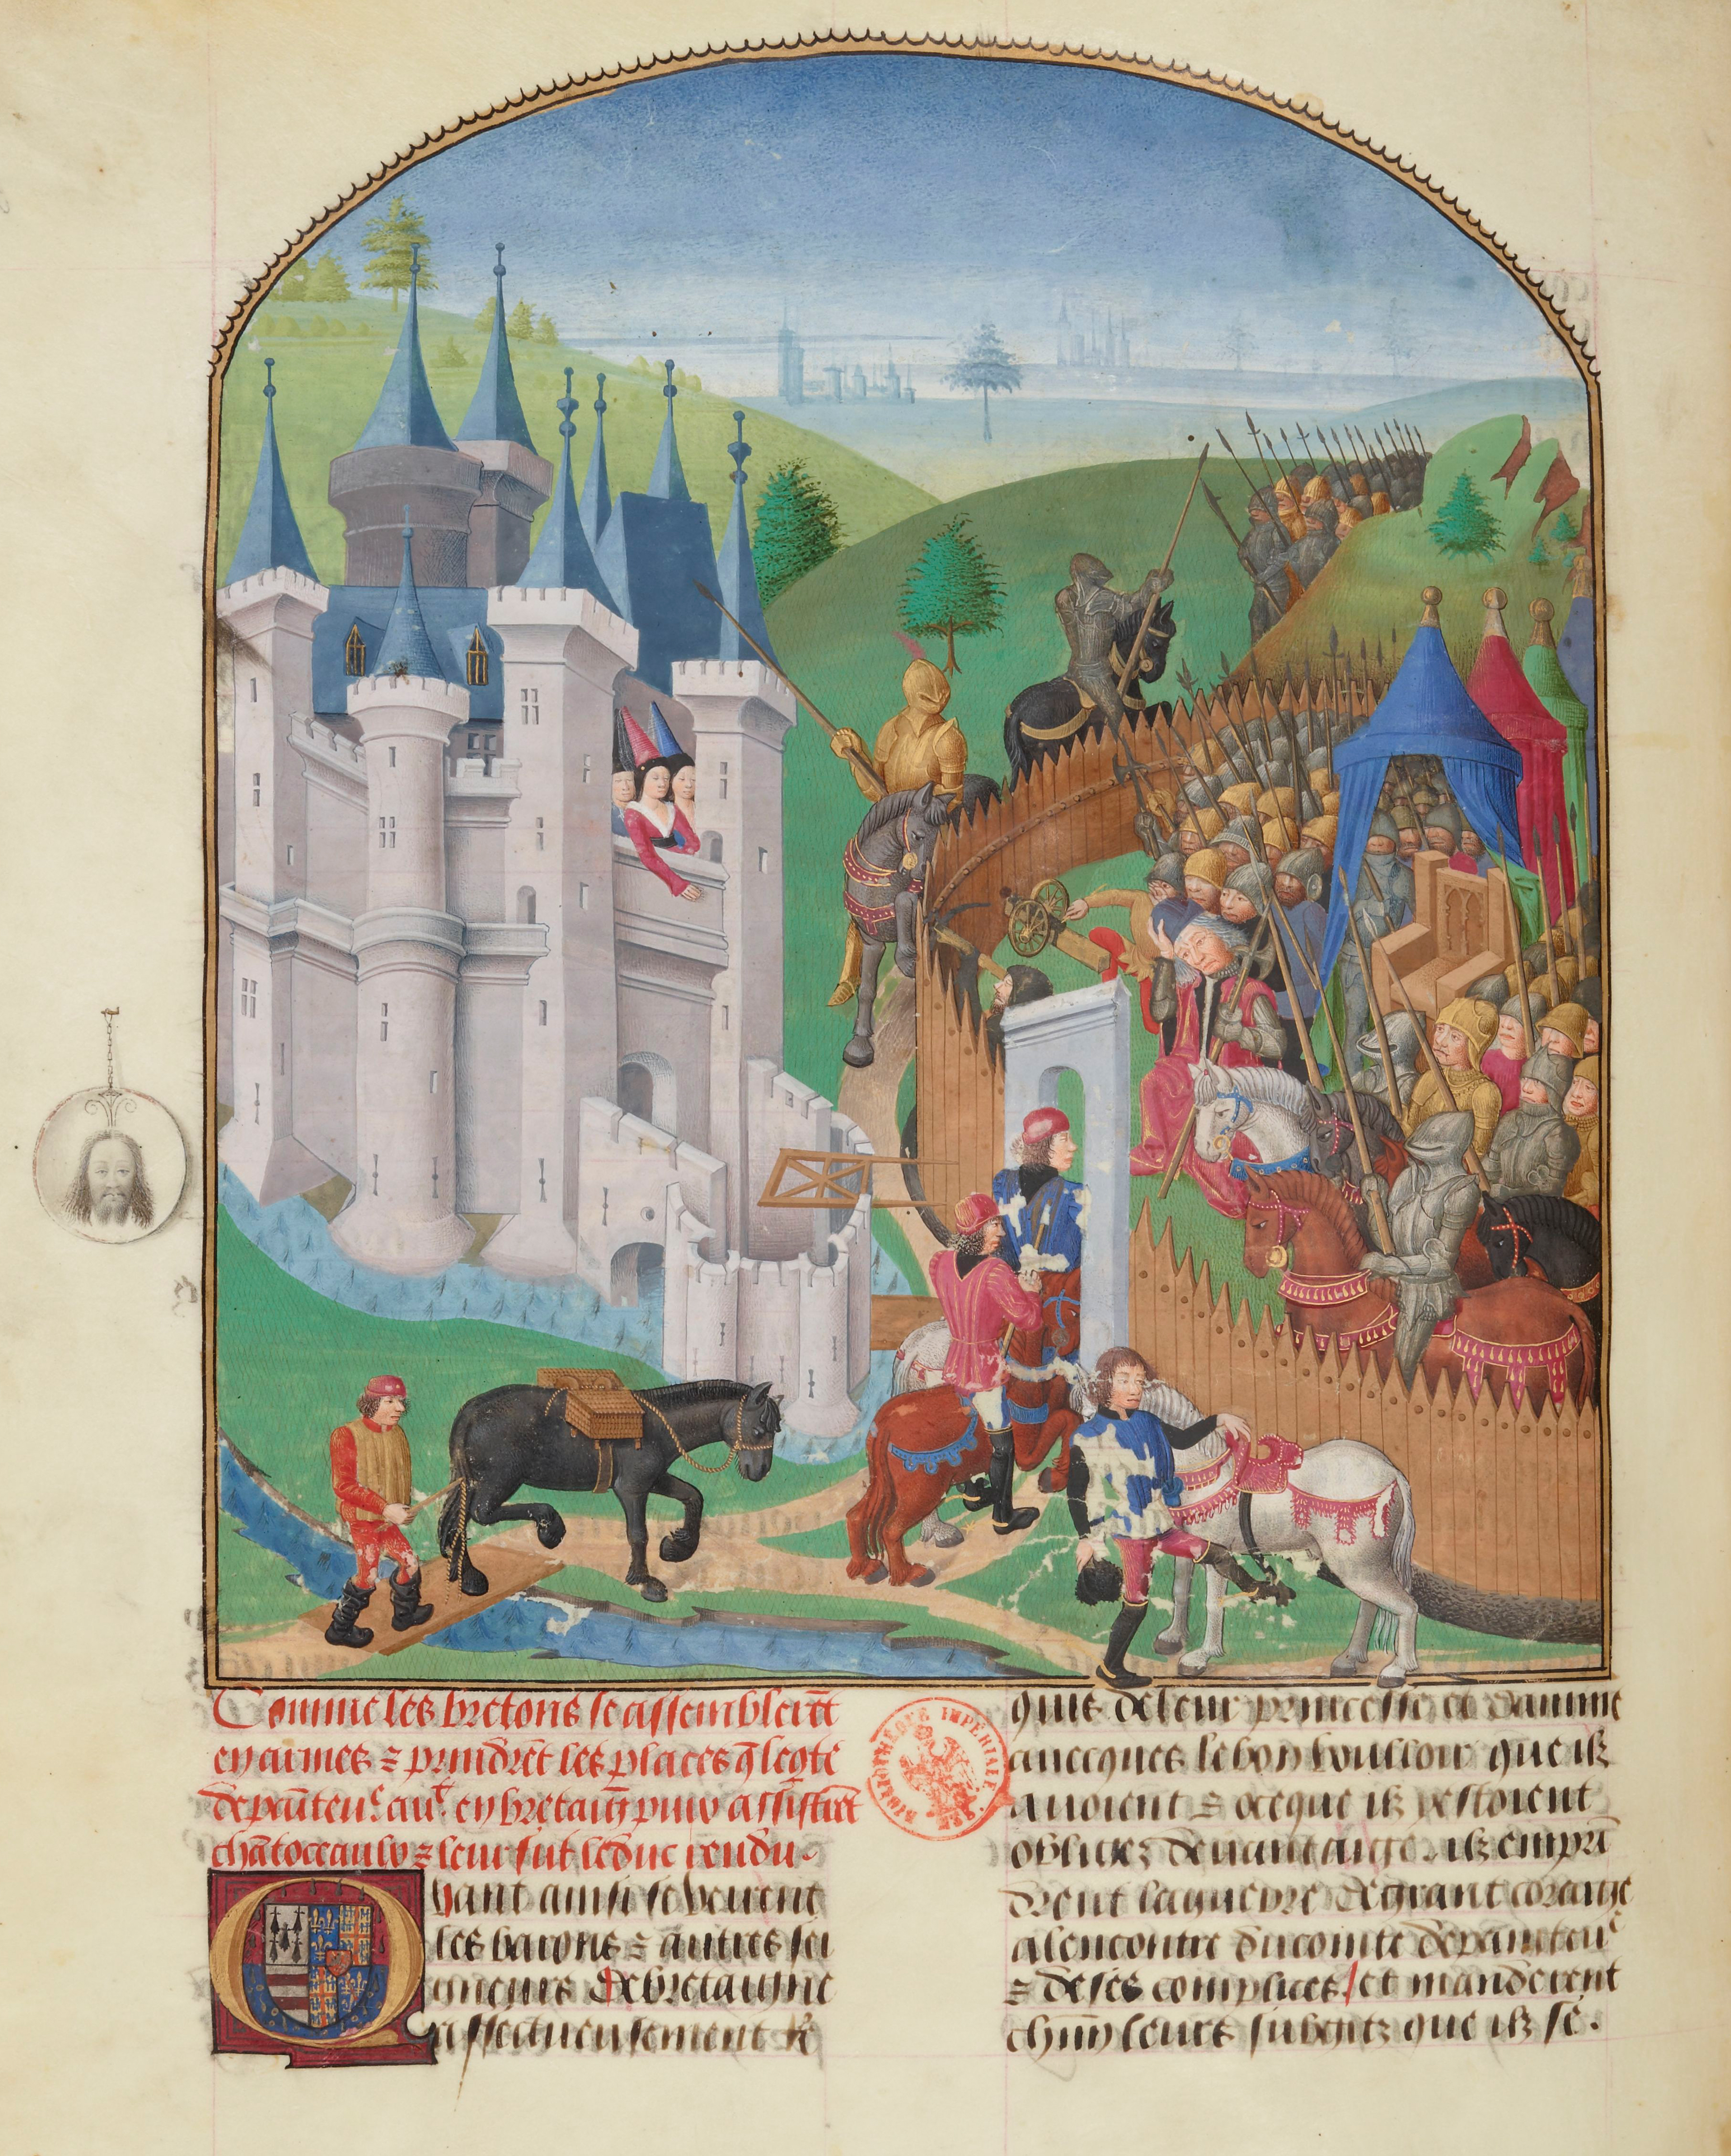 Comme les bretons se assemblerēt
en armes ⁊ prindrēt les places q̄ le cōte
de pāuteuᵉ auᵗ en bretaigͫ puis assistrēt
chātoceaulx ⁊ leur fut le duc rendu.
Quant ainsi se virent
les barons ⁊ autres sei
gneurs de bretaigne
affectueusement re
quis de leur princesse et damme
auecques le bon voulloir que ilz
auoient ⁊ a ce que ilz y estoient
obligez deuant aussi. ilz emprī
drent la guerre de grant coraige
alencontre du comte de painteuᵉ
⁊ de ses complices / et manderent
chūn leurs subgetz que ilz se
BIBLIOTHÈQUE IMPÉRIALE